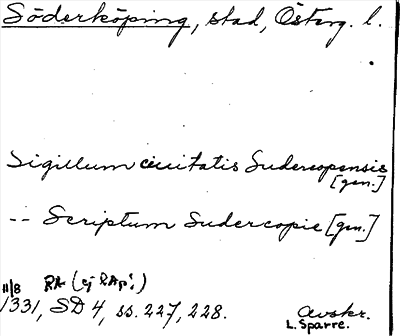 Söderköping, stad, Österg. l.
Sigillum ciuitatis Sudercopensis
[gen.]
-- Scriptum Sudercopie [gen.]
11/8 RA (ej RAp!)
1331, SD 4, ss. 227, 228.
Avskr.
L. Sparre.